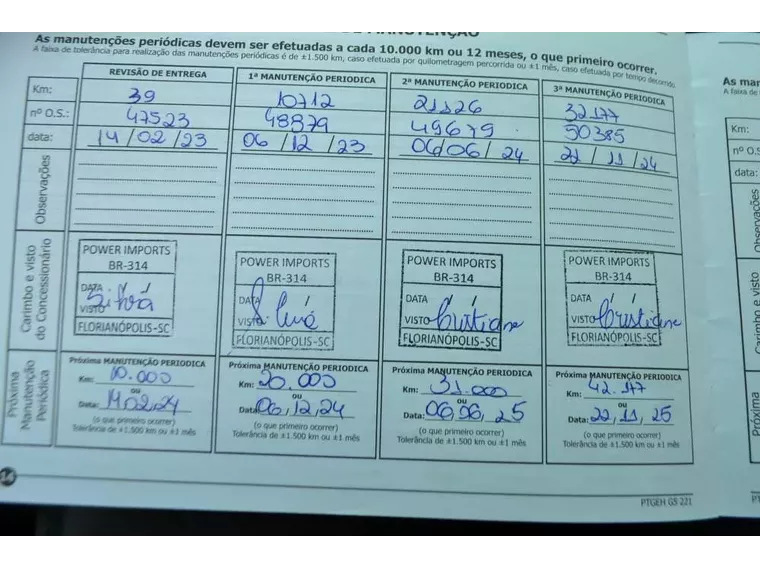 DE MANUTENÇÃO
As manutenções periódicas devem ser efetuadas a cada 10.000 km ou 12 meses, o que primeiro ocorrer.
A faixa de tolerância para realização das manutenções periódicas é de ±1.500 km, caso efetuada por quilometragem percorrida ou ±1 mês, caso efetuada por tempo decorrido
REVISÃO DE ENTREGA 1ª MANUTENÇÃO PERIODICA 2ª MANUTENÇÃO PERIODICA 3ª MANUTENÇÃO PERIODICA
Km: 39 10712 21126 32177
nº O.S.: 47523 48879 49679 50385
data: 14/02/23 06/12/23 06/06/24 22/11/24
Observações
Carimbo e visto do Concessionário
POWER IMPORTS POWER IMPORTS POWER IMPORTS POWER IMPORTS
BR-314 BR-314 BR-314 BR-314
DATA / / DATA / / DATA / / DATA / /
VISTO Silva VISTO VISTO Cristiane VISTO Cristiane
FLORIANÓPOLIS-SC FLORIANÓPOLIS-SC FLORIANÓPOLIS-SC FLORIANÓPOLIS-SC
Próxima Manutenção Periódica
Próxima MANUTENÇÃO PERIODICA Próxima MANUTENÇÃO PERIODICA Próxima MANUTENÇÃO PERIODICA Próxima MANUTENÇÃO PERIODICA
Km: 10.000 Km: 20.000 Km: 31.000 Km: 42.177
ou ou ou ou
Data: 14.02.24 Data: 06,12,24 Data: 06,06,25 Data: 22,11,25
(o que primeiro ocorrer) (o que primeiro ocorrer) (o que primeiro ocorrer) (o que primeiro ocorrer)
Tolerância de ±1.500 km ou ±1 mês Tolerância de ±1.500 km ou ±1 mês Tolerância de ±1.500 km ou ±1 mês Tolerância de ±1.500 km ou ±1 mês
14
PTGEH GS 221
As mar
A faixa de
Km:
nº O.S
data:
Observações
Carimbo e visto
Próxima